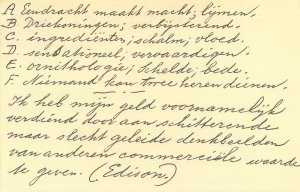 A. Eendracht maakt macht; lijmen.
B. Driekoningen; verbijsterend.
C. ingrediënten; schalm; vloed.
D. sensationeel; vervaardigen.
E. ornithologie; Schelde; bede.
F. Niemand kan twee heren dienen.
Ik heb mijn geld voornamelijk
verdiend door aan schitterende
maar slecht geleide denkbeelden
van anderen commerciële waarde
te geven. (Edison.)